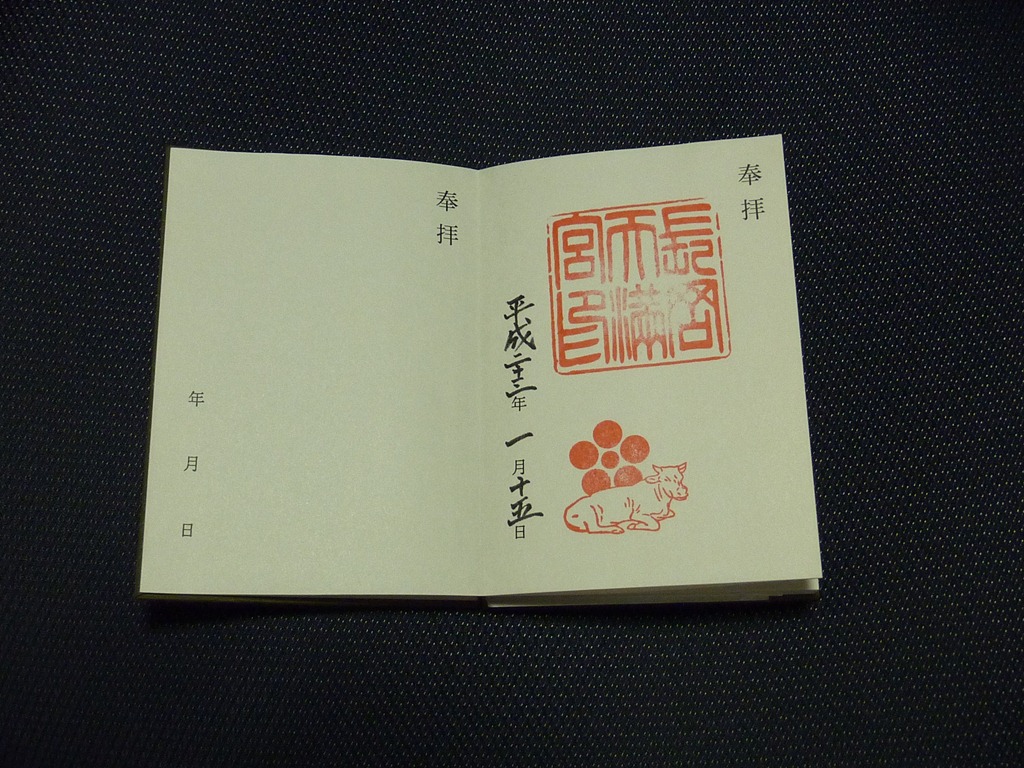 奉拝
長岡
天満
宮印
平成二十二年一月十五日
奉拝
年月日